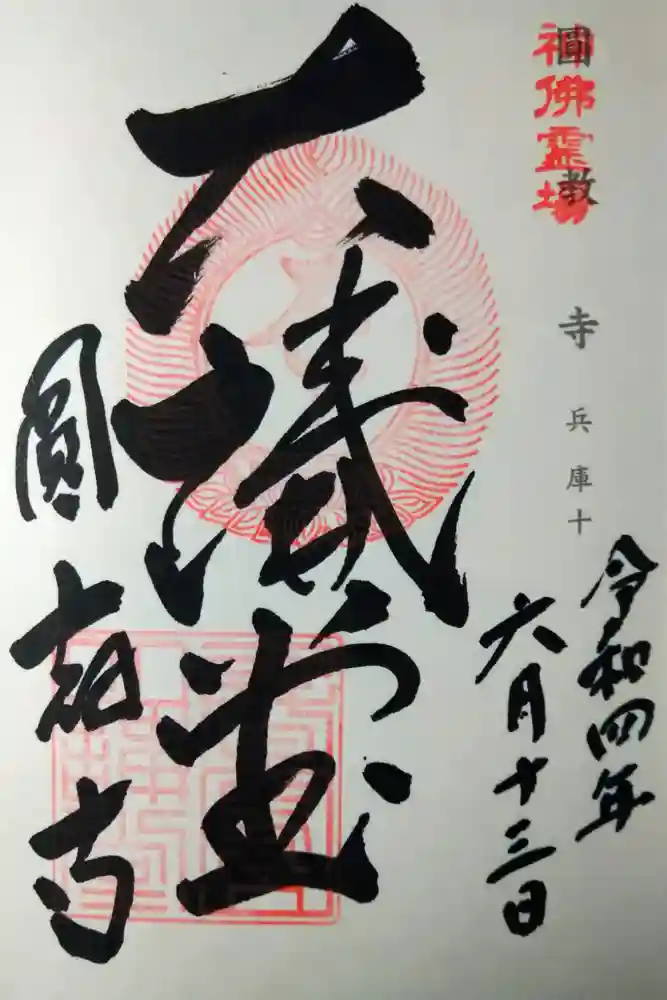 圓教寺 兵庫十
神佛霊場
令和四年
六月十三日
大講堂
圓教寺